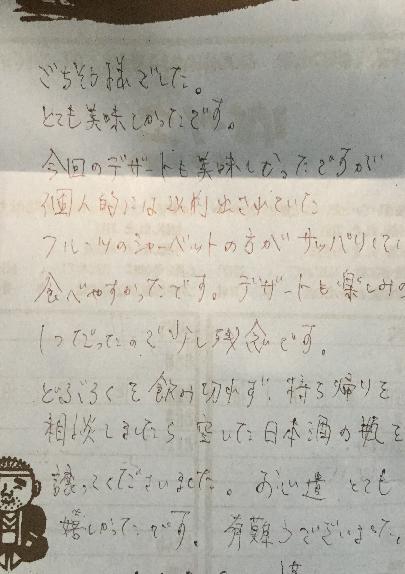 ごちそう様でした。
とても美味しかったです。
今回のデザートも美味しかったですが
個人的には以前出されていた
フルーツのシャーベットの方がサッパリして
食べやすかったです。デザートも楽しみの
1つだったので少し残念です。
どぶろくを飲み切れず、持ち帰りを
相談しましたら空いた日本酒の瓶を
譲ってくださいました。お心遣とても
嬉しかったです。有難うございました。